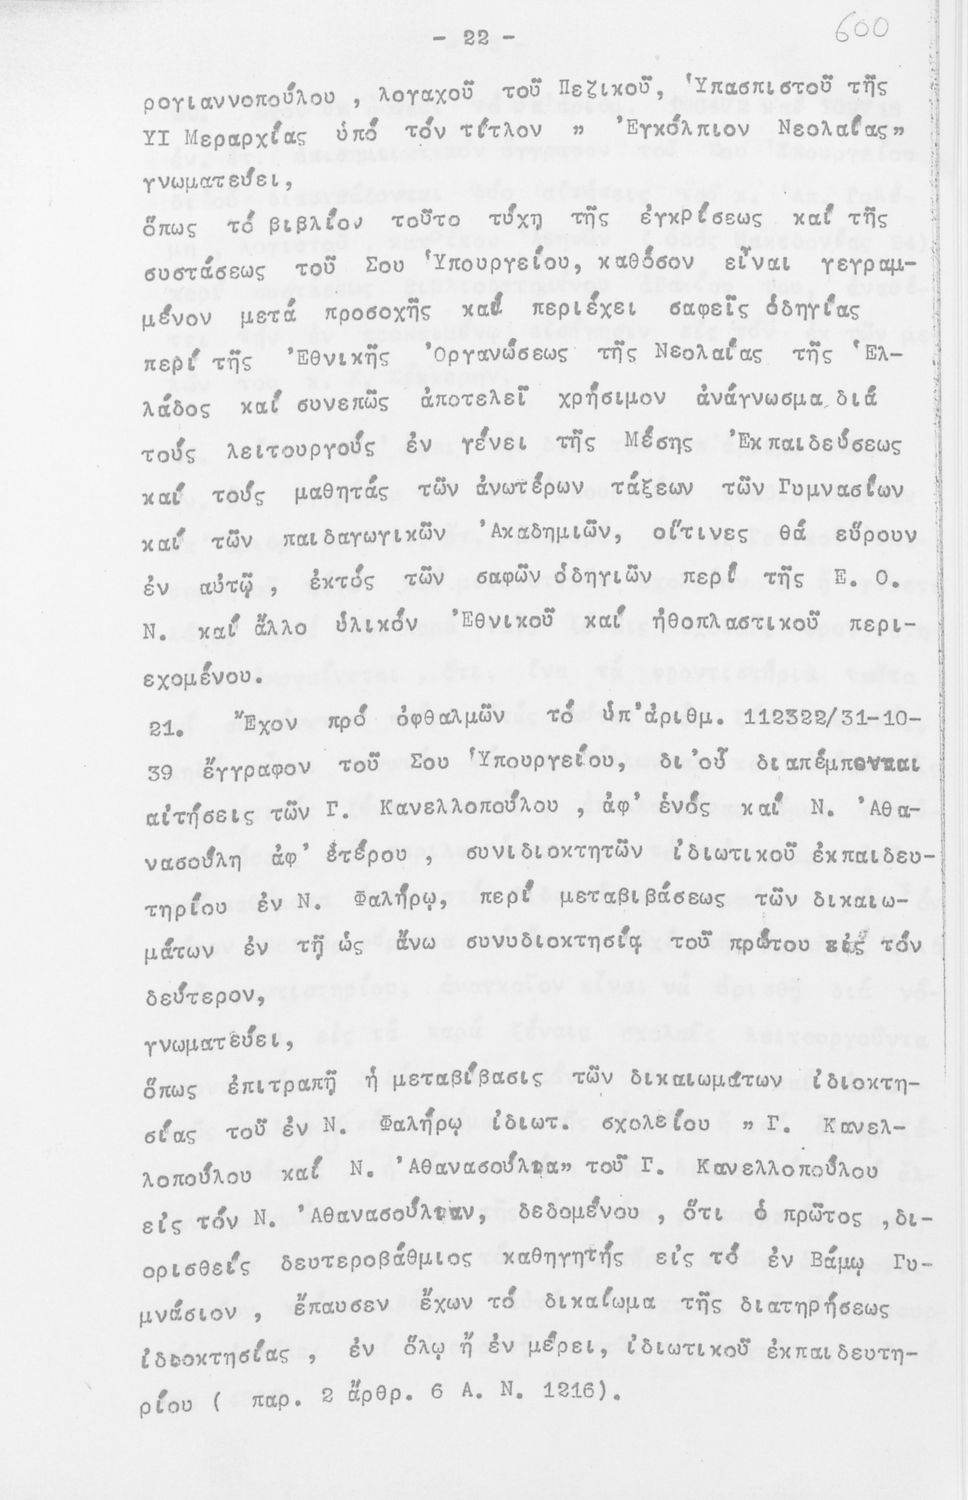 - 22 -
600
ρογιαννοπούλου , λογαχοῦ τοῦ Πεζικοῦ, Ὑπασπιστοῦ τῆς
ΥΙ Μεραρχίας ὑπό τόν τίτλον " Ἐγκόλπιον Νεολαίας"
γνωματεύει,
ὅπως τό βιβλίον τοῦτο τύχη τῆς ἐγκρίσεως καί τῆς
συστάσεως τοῦ Σου Ὑπουργείου, καθόσον εἶναι γεγραμ-
μένον μετά προσοχῆς καί περιέχει σαφεῖς ὁδηγίας
περί τῆς Ἐθνικῆς Ὀργανώσεως τῆς Νεολαίας τῆς Ἑλ-
λάδος καί συνεπῶς ἀποτελεῖ χρήσιμον ἀνάγνωσμα διά
τούς λειτουργούς ἐν γένει τῆς Μέσης Ἐκπαιδεύσεως
καί τούς μαθητάς τῶν ἀνωτέρων τάξεων τῶν Γυμνασίων
καί τῶν παιδαγωγικῶν Ἀκαδημιῶν, οἵτινες θά εὕρουν
ἐν αὐτῷ , ἐκτός τῶν σαφῶν ὁδηγιῶν περί τῆς Ε. Ο.
Ν. καί ἄλλο ὑλικόν Ἐθνικοῦ καί ἠθοπλαστικοῦ περι-
εχομένου.
21. Ἔχον πρό ὀφθαλμῶν τό ὑπ'ἀριθμ. 112322/31-10-
39 ἔγγραφον τοῦ Σου Ὑπουργείου, δι'οὗ διαπέμπονται
αἰτήσεις τῶν Γ. Κανελλοπούλου , ἀφ' ἑνός καί Ν. Ἀθα-
νασούλη ἀφ' ἑτέρου , συνιδιοκτητῶν ἰδιωτικοῦ ἐκπαιδευ-
τηρίου ἐν Ν. Φαλήρῳ, περί μεταβιβάσεως τῶν δικαιω-
μάτων ἐν τῇ ὡς ἄνω συνυδιοκτησίᾳ τοῦ πρώτου εἰς τόν
δεύτερον,
γνωματεύει,
ὅπως ἐπιτραπῇ ἡ μεταβίβασις τῶν δικαιωμάτων ἰδιοκτη-
σίας τοῦ ἐν Ν. Φαλήρῳ ἰδιωτ. σχολείου " Γ. Κανελ-
λοπούλου καί Ν. Ἀθανασούλια" τοῦ Γ. Κανελλοπούλου
εἰς τόν Ν. Ἀθανασούλιαν, δεδομένου , ὅτι ὁ πρῶτος ,δι-
ορισθείς δευτεροβάθμιος καθηγητής εἰς τό ἐν Βάμῳ Γυ-
μνάσιον , ἔπαυσεν ἔχων τό δικαίωμα τῆς διατηρήσεως
ἰδιοκτησίας , ἐν ὅλῳ ἤ ἐν μέρει, ἰδιωτικοῦ ἐκπαιδευτη-
ρίου ( παρ. 2 ἄρθρ. 6 Α. Ν. 1216).